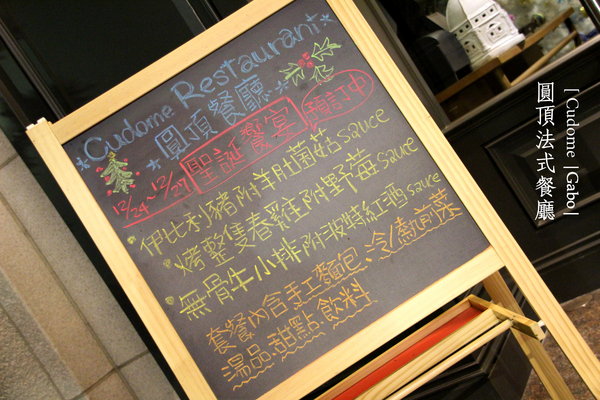 Cudome Restaurant
圓頂餐廳
12/24~12/27 聖誕饗宴 預訂中
伊比利豬附羊肚菌菇sauce
烤整隻春雞附野莓sauce
無骨牛小排附波特紅酒sauce
套餐內含手工麵包、冷/熱前菜
湯品、甜點、飲料
[Cudome |Gabo]
圓頂法式餐廳